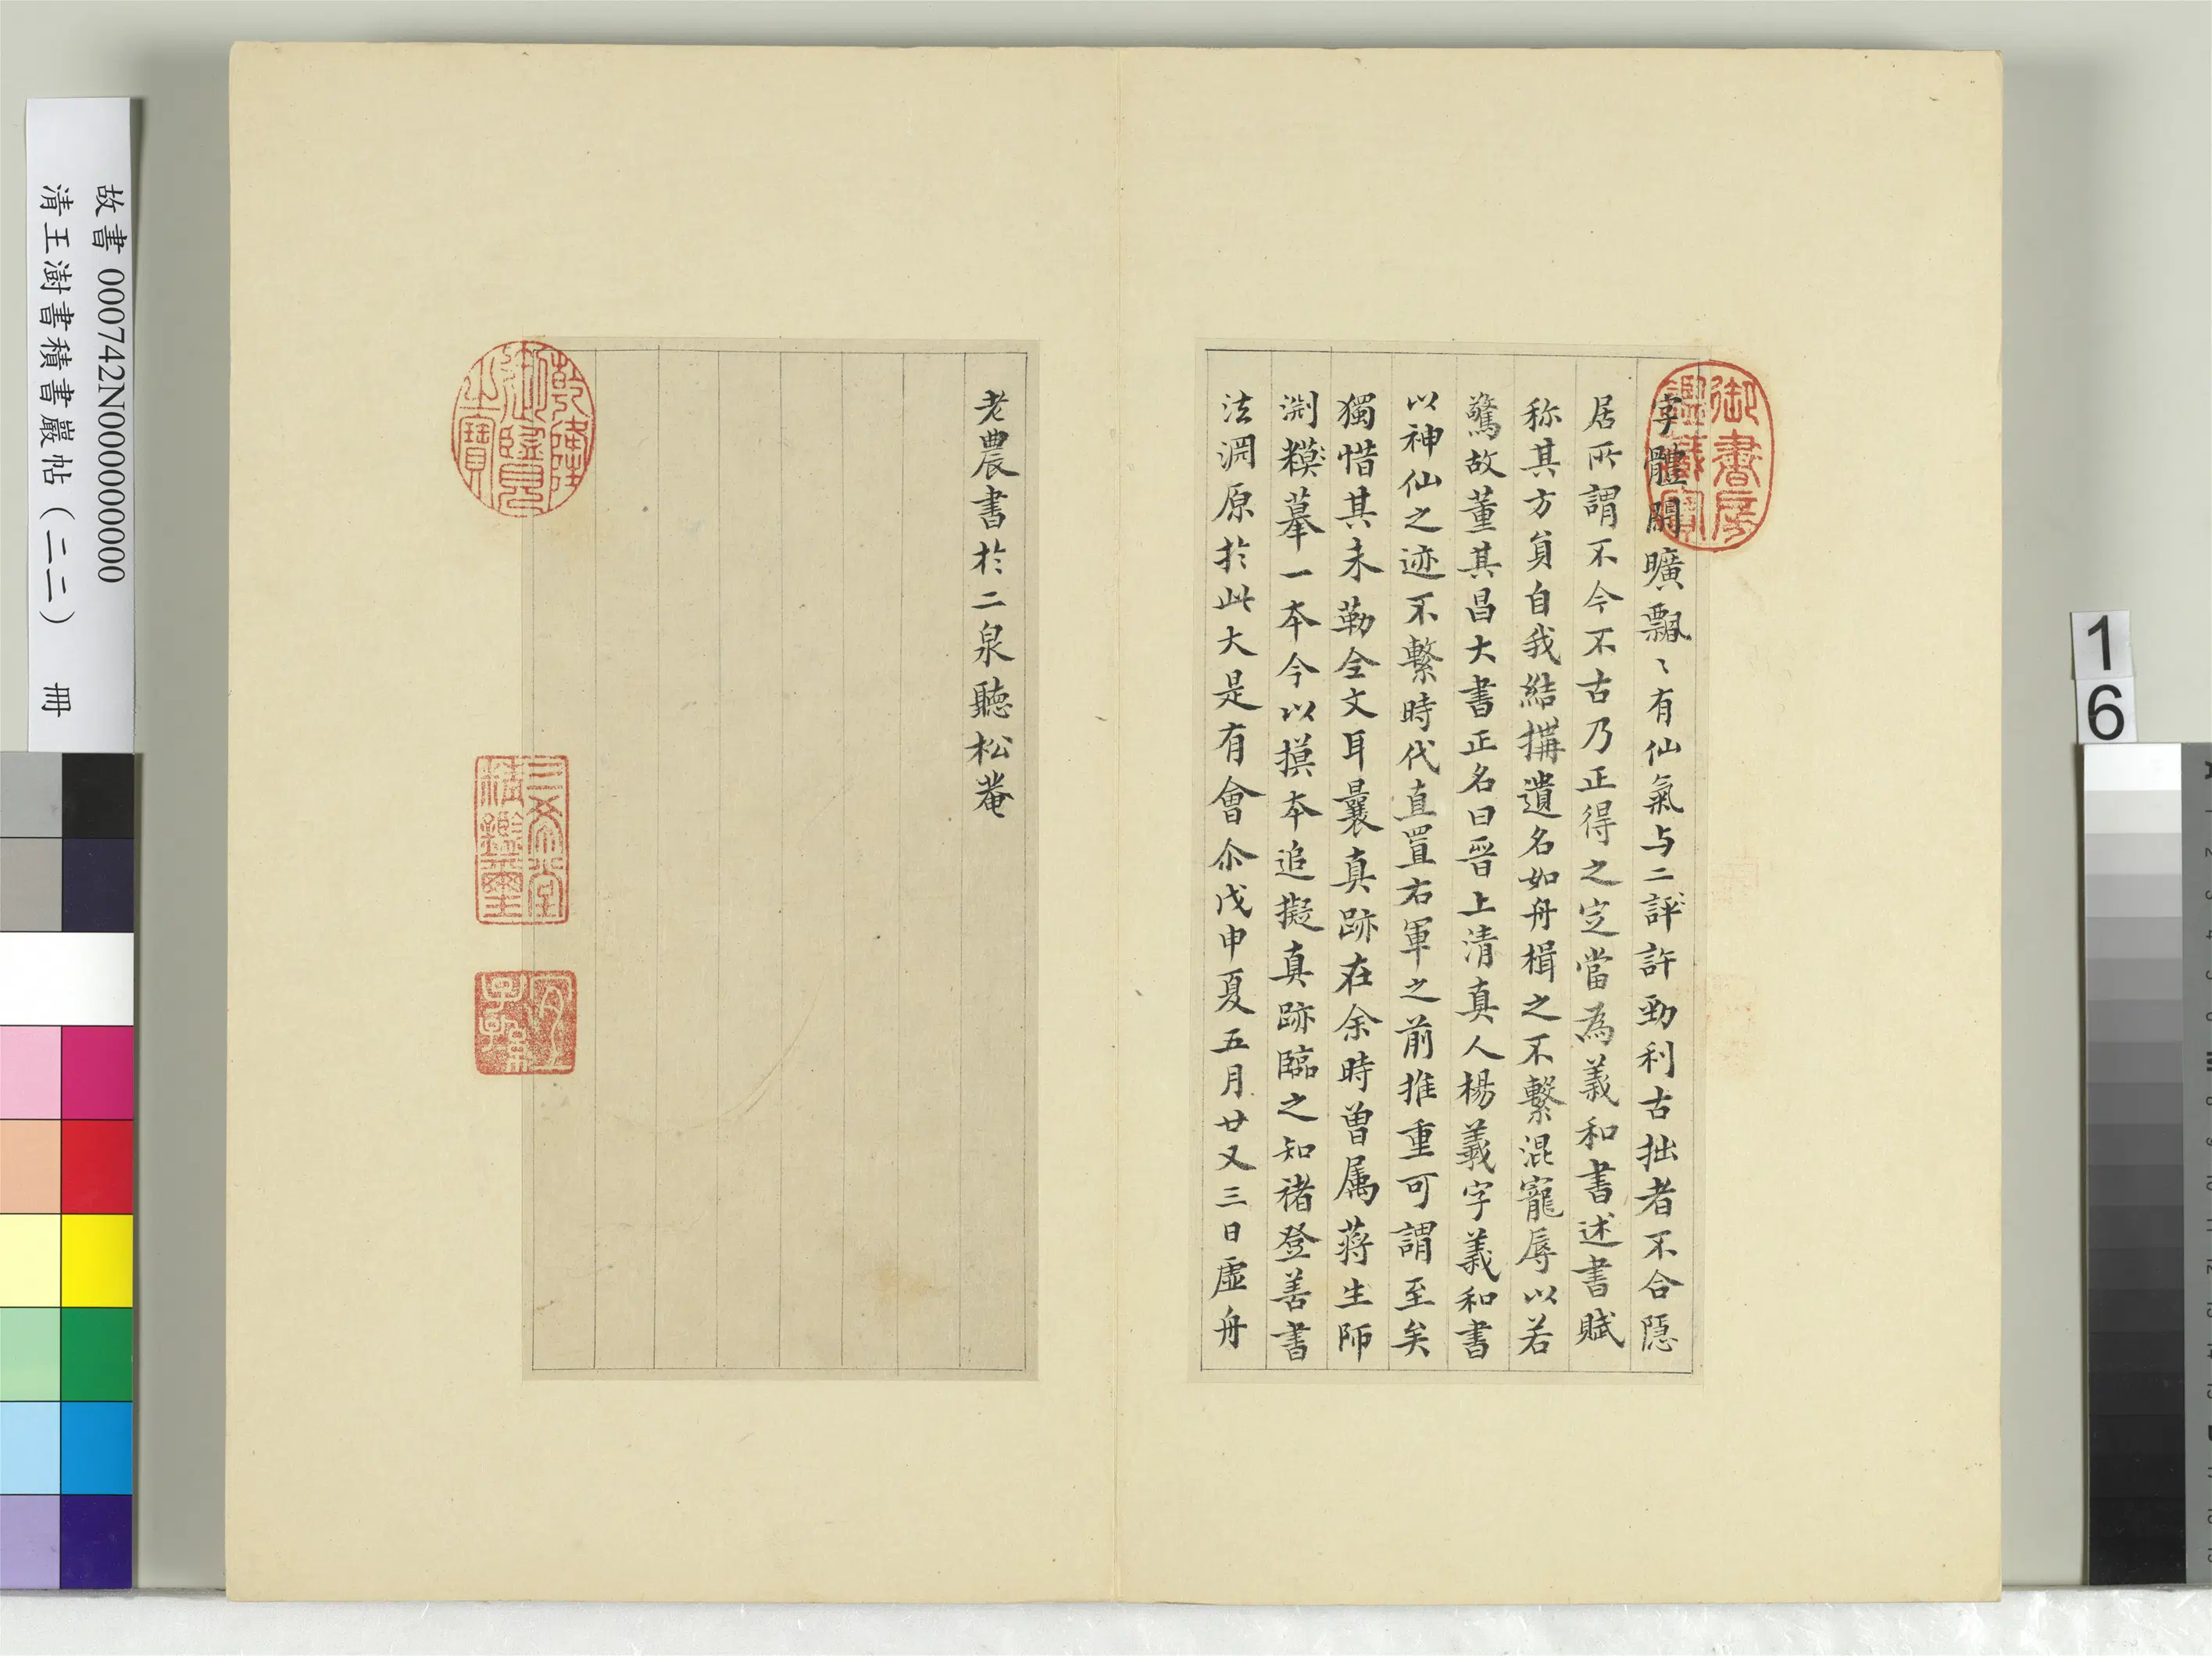 字體閒曠飄〻有仙氣与二評許勁利古拙者不合隱
居所謂不今不古乃正得之定當為羲和書述書賦
称其方員自我結搆遺名如舟楫之不繫混寵辱以若
驚故董其昌大書正名曰晉上清真人楊羲字羲和書
以神仙之迹不繫時代直置右軍之前推重可謂至矣
獨惜其未勒全文耳曩真跡在余時曾属蔣生師
淵橅摹一本今以摸本追擬真跡臨之知褚登善書
法淵原於此大是有會尒戊申夏五月廿又三日虛舟
老農書於二泉聽松菴
御書房鑑藏寶
乾隆御覽之寶
三希堂精鑑璽
宜子孫
故書 000742N000000000
清王澍書積書巖帖（二二） 冊
16